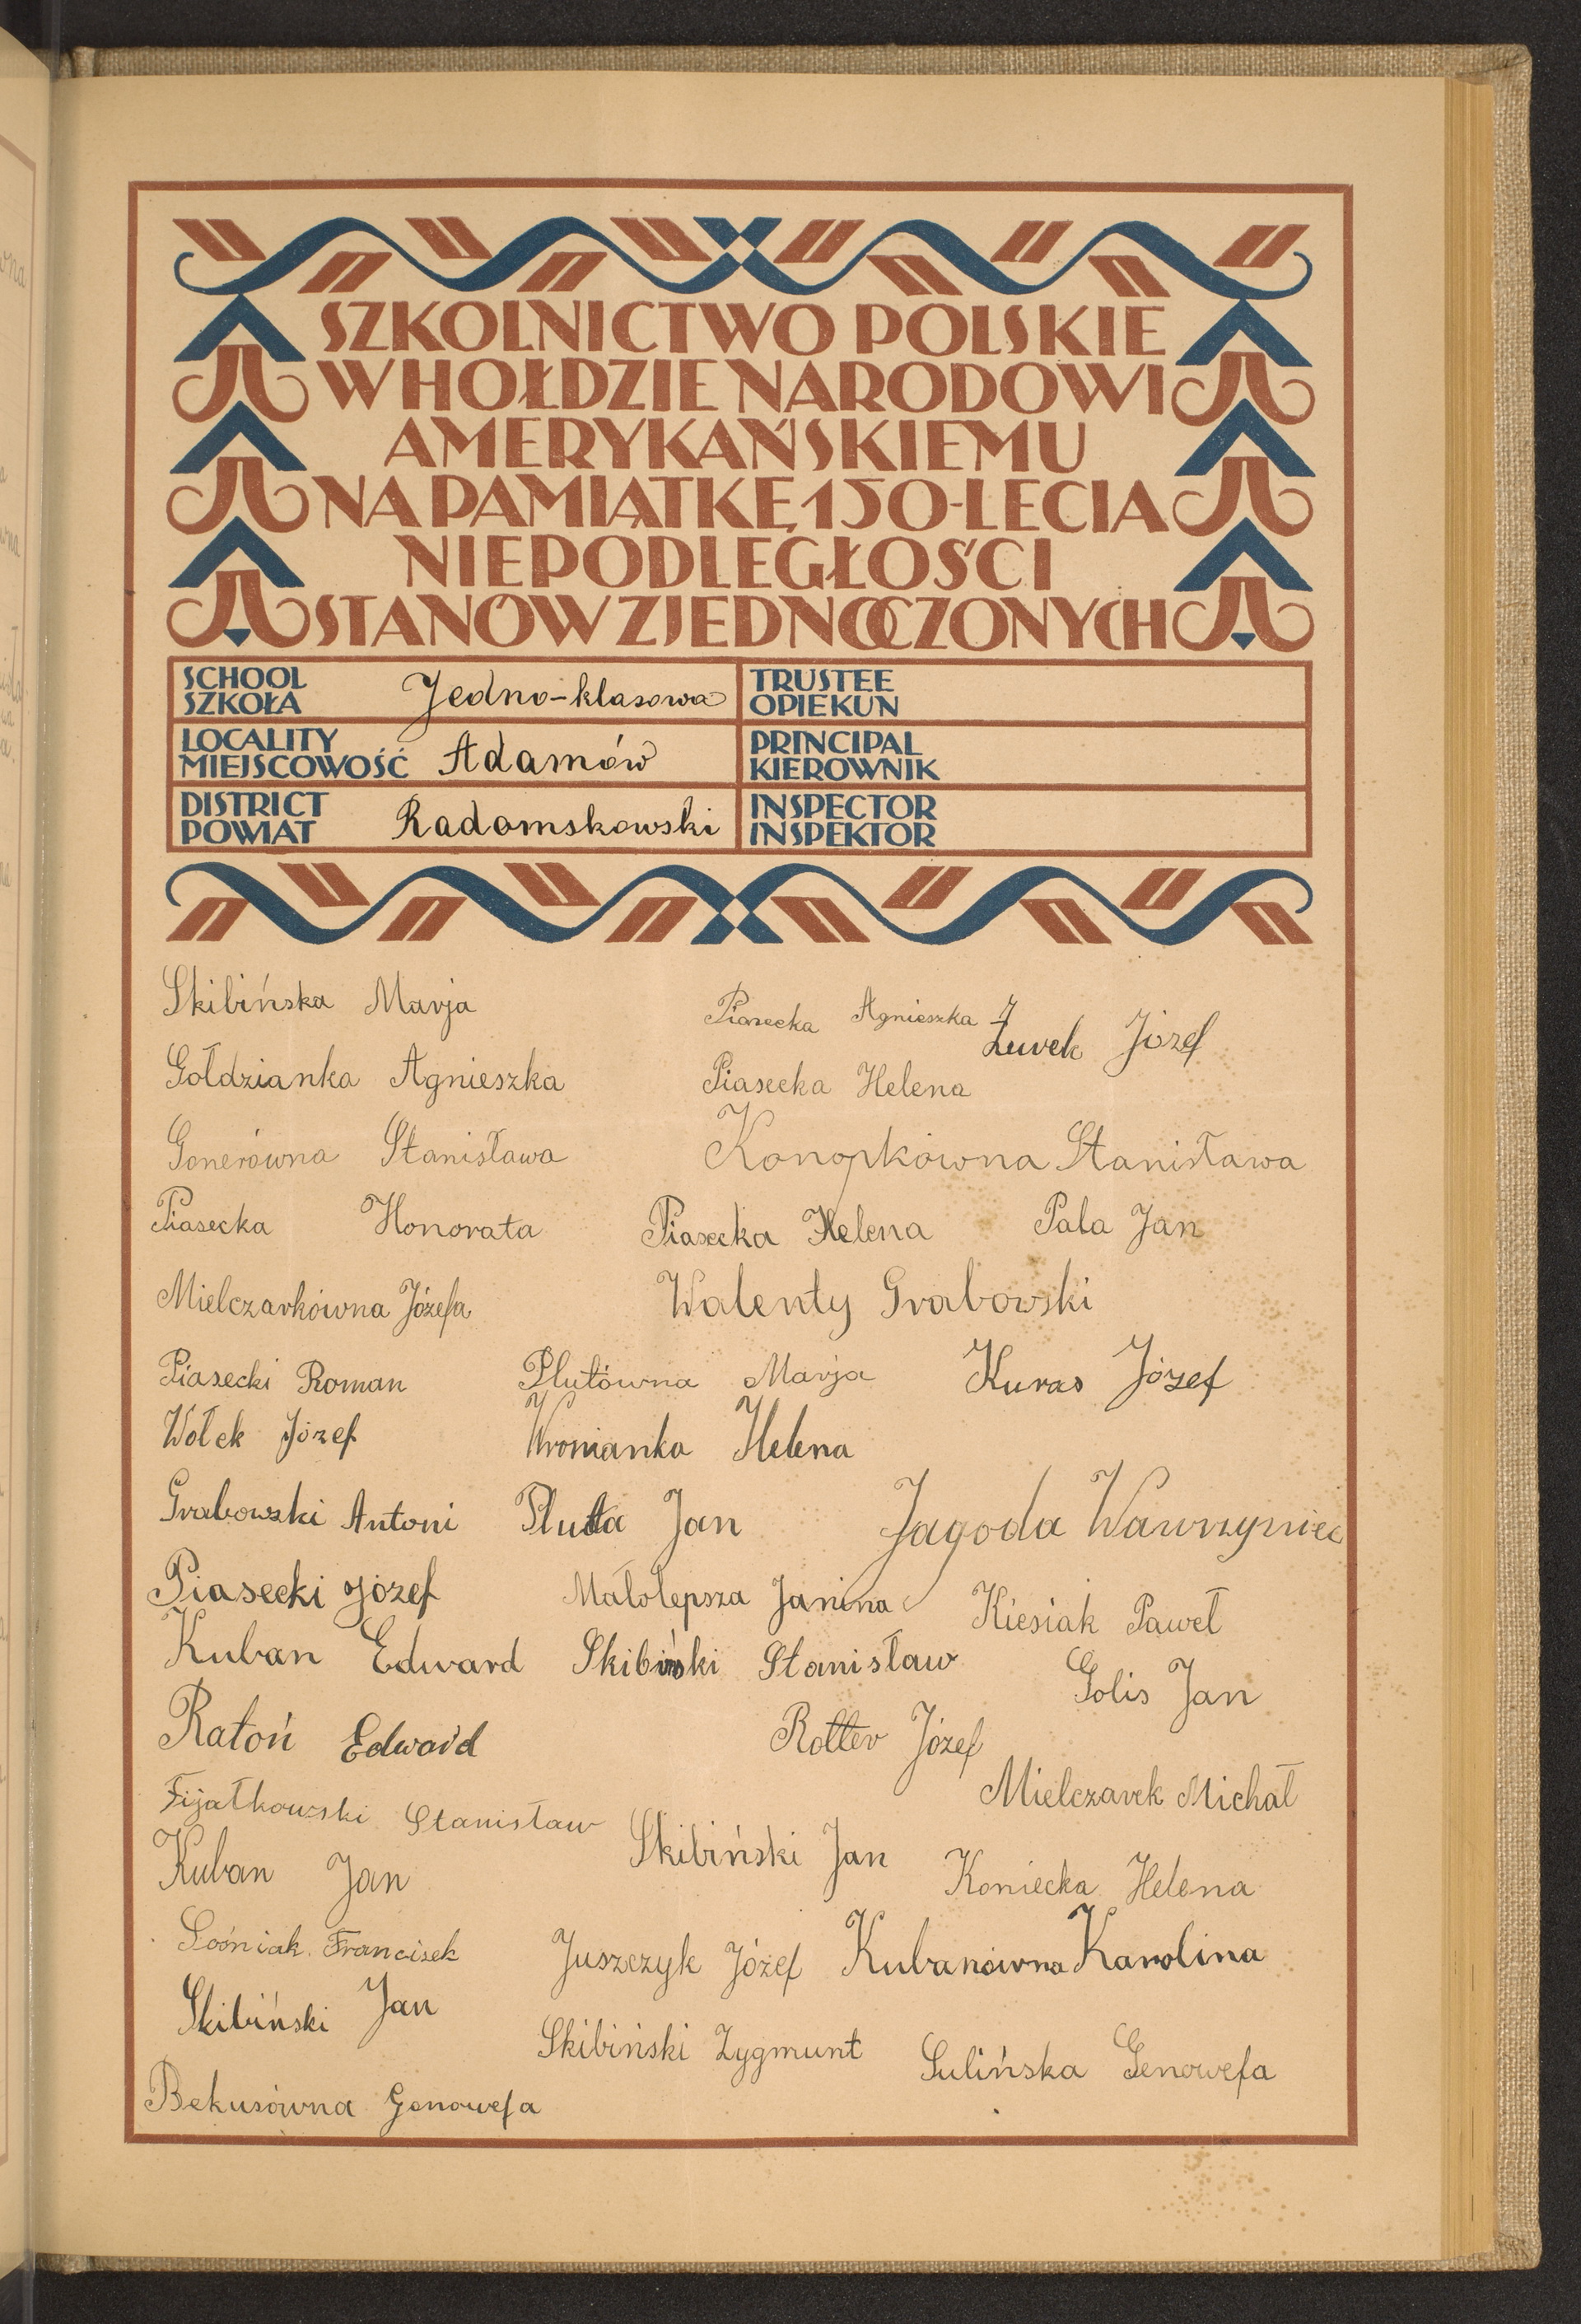 SZKOLNICTWO POLSKIE
W HOŁDZIE NARODOWI
AMERYKAŃSKIEMU
NA PAMIĄTKĘ 150-LECIA
NIEPODLEGŁOŚCI
STANÓW ZJEDNOCZONYCH
SCHOOL
SZKOŁA
Jedno-klasowa
TRUSTEE
OPIEKUN
LOCALITY
MIEJSCOWOŚĆ
Adamów
PRINCIPAL
KIEROWNIK
DISTRICT
POWIAT
Radomskowski
INSPECTOR
INSPEKTOR
Skibińska Marja
Piasecka Agnieszka
Żurek Józef
Gołdzianka Agnieszka
Piasecka Helena
Gonerówna Stanisława
Konopkówna Stanisława
Piasecka Honorata
Piasecka Helena
Pala Jan
Mielczarkówna Józefa
Walenty Grabowski
Piasecki Roman
Plutówna Marja
Kuras Józef
Wołek Józef
Wronianka Helena
Grabowski Antoni
Pluta Jan
Jagoda Wawrzyniec
Piasecki Józef
Małolepsza Janina
Kiesiak Paweł
Kuban Edward
Skibiński Stanisław
Golis Jan
Ratoń Edward
Rotter Józef
Mielczarek Michał
Fijałkowski Stanisław
Skibiński Jan
Kuban Jan
Koniecka Helena
Lośniak Francisek
Juszczyk Józef
Kubanówna Karolina
Skibiński Jan
Skibiński Zygmunt
Sulińska Genowefa
Bekusówna Genowefa